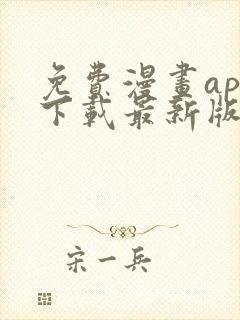 免费漫畫ap
下載最新版
宋一兵